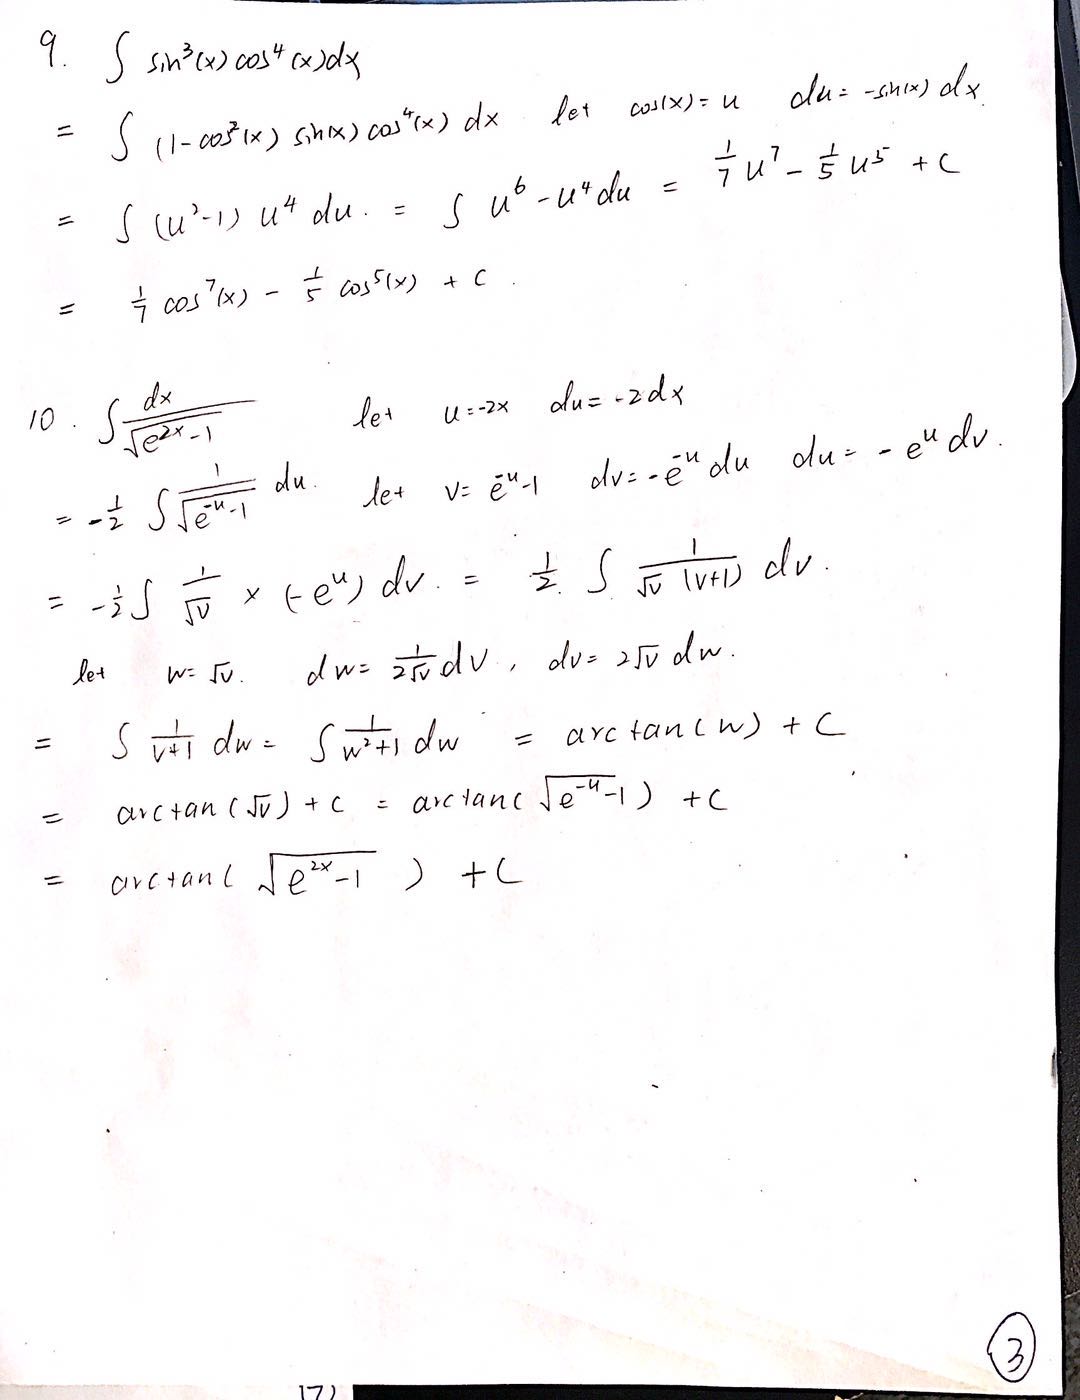 9. ∫ sin³(x) cos⁴(x)dx
= ∫ (1-cos²(x) sin(x) cos⁴(x) dx let cos(x) = u du = -sin(x) dx.
= ∫ (u²-1) u⁴ du. = ∫ u⁶ - u⁴ du = 1/7 u⁷ - 1/5 u⁵ + C
= 1/7 cos⁷(x) - 1/5 cos⁵(x) + C.
10. ∫ dx/√(e²ˣ-1) let u=-2x du= -2dx
= -1/2 ∫ 1/√(e⁻ᵘ-1) du. let v= e⁻ᵘ-1 dv= -e⁻ᵘ du du= - eᵘ dv.
= -1/2 ∫ 1/√v × (-eᵘ) dv. = 1/2. ∫ 1/(√v (v+1)) dv.
let w= √v. dw= 1/(2√v) dv, dv= 2√v dw.
= ∫ 1/(v+1) dw = ∫ 1/(w²+1) dw = arctan(w) + C
= arctan(√v) + C = arctan(√(e⁻ᵘ-1)) + C
= arctan(√(e²ˣ-1)) + C
3
17)